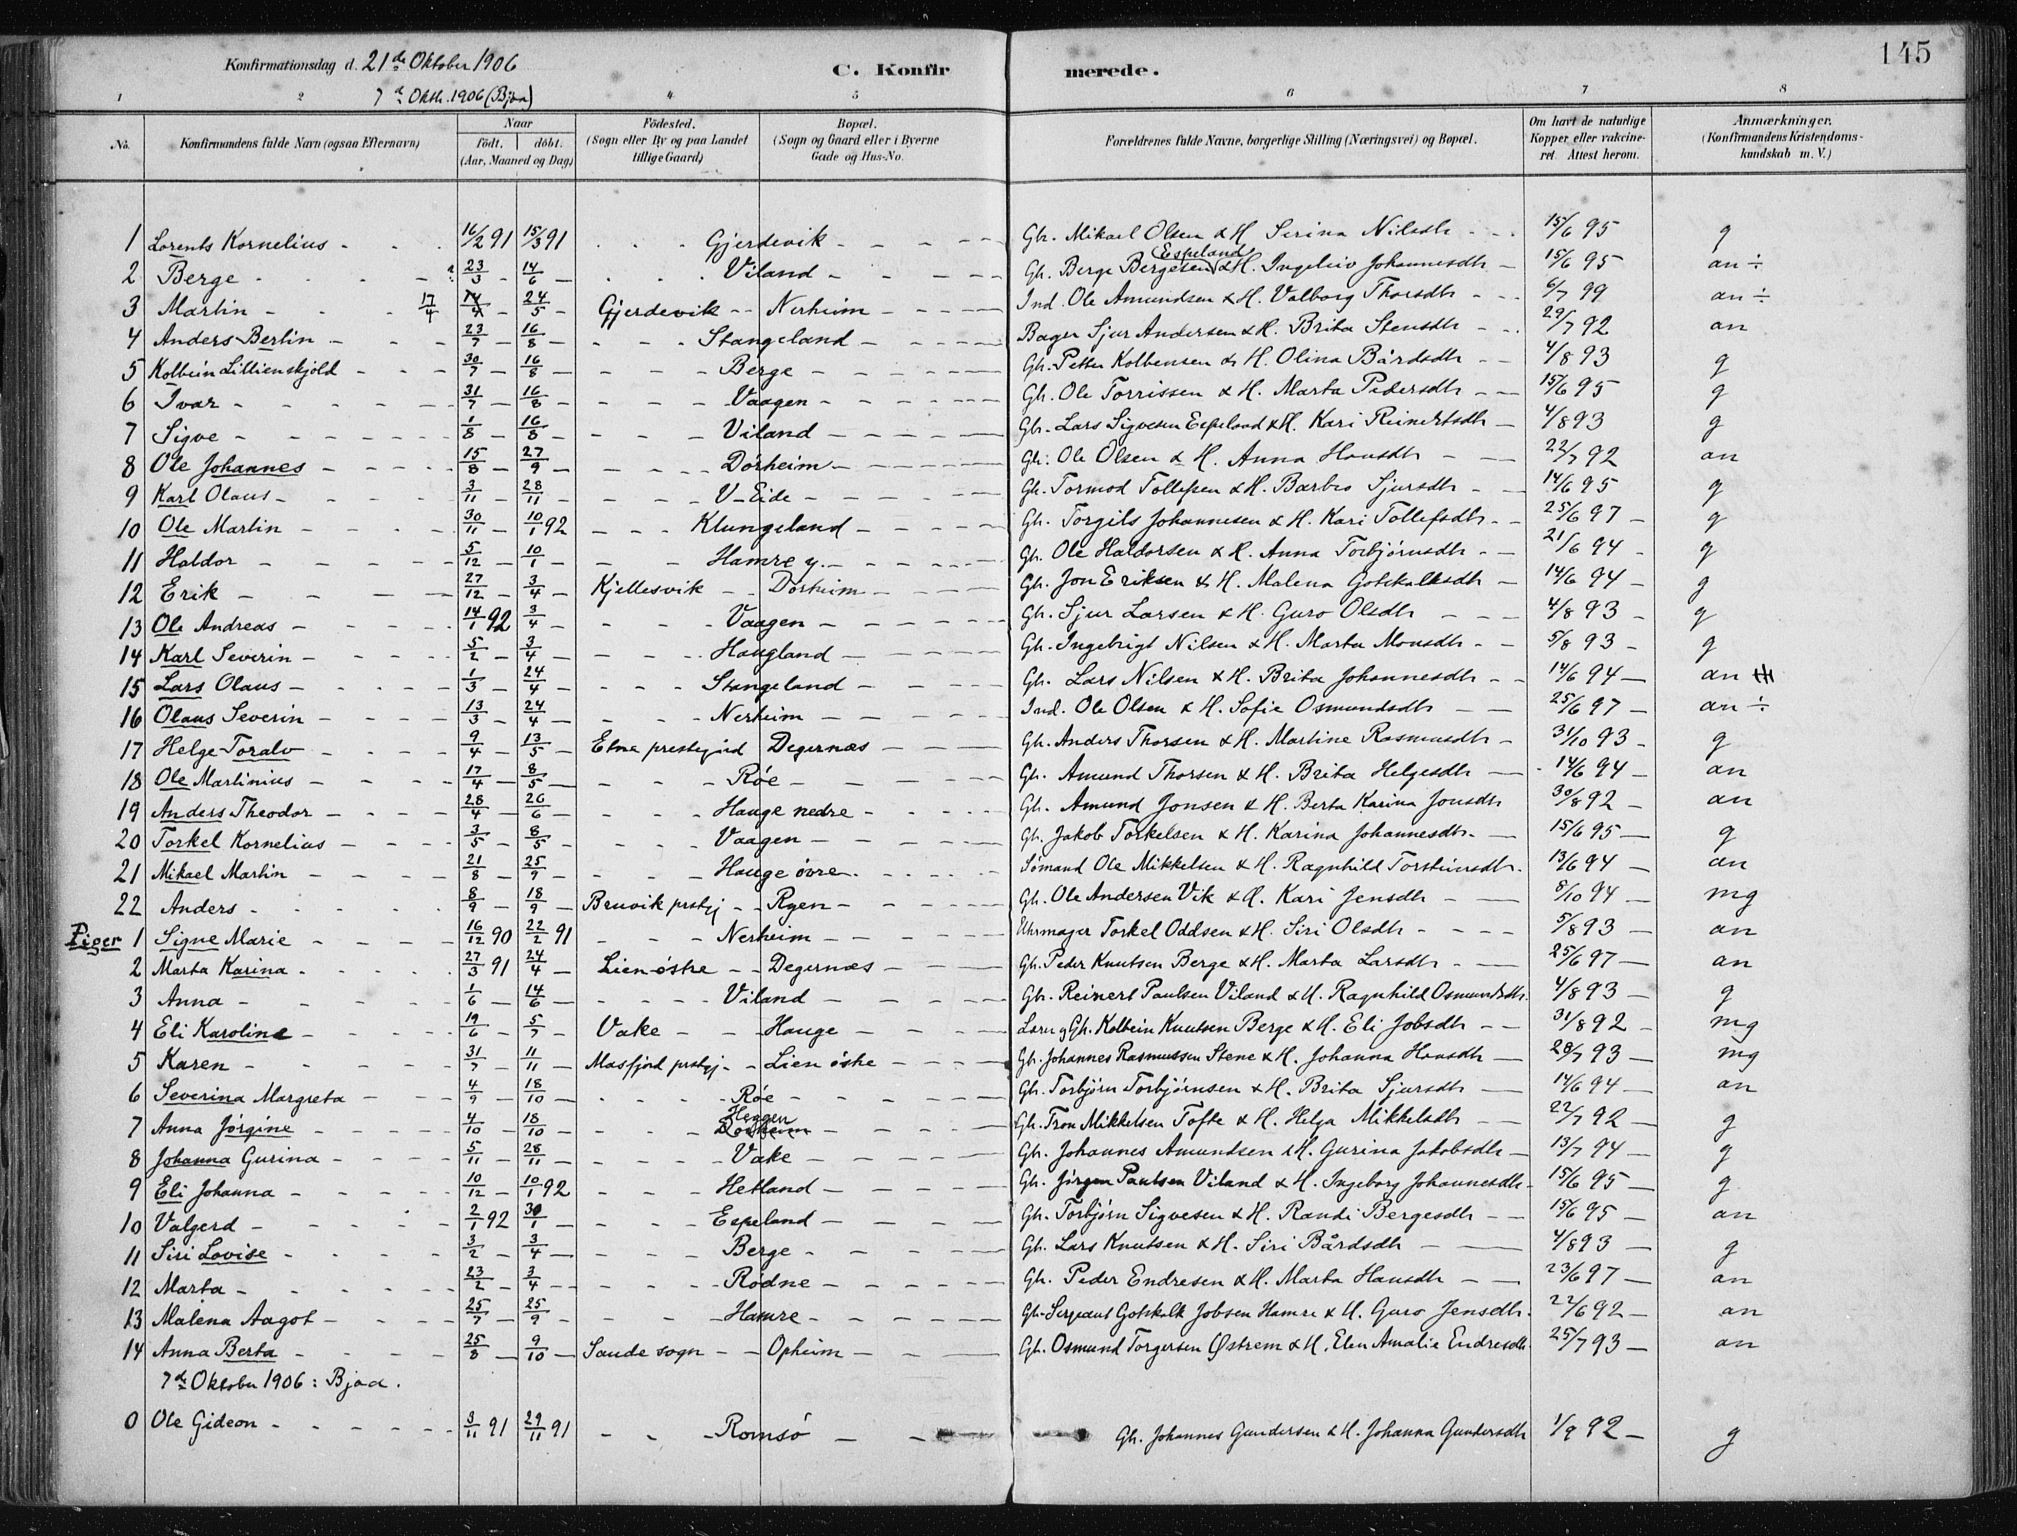 145
Konfirmationsdag d. 21de Oktober 1906 C. Konfirmerede.
7de Oktb. 1906 (Bjoa)
1 2 4 5 6 7 8
No. Konfirmandens fulde Navn (ogsaa Efternavn) Naar födt. döbt. (Aar, Maaned og Dag) Födested. (Sogn eller By og paa Landet tillige Gaard) Bopæl. (Sogn og Gaard eller i Byerne Gade og Hus-No. Forældrenes fulde Navne, borgerlige Stilling (Næringsvei) og Bopæl. Om havt de naturlige Kopper eller vakcineret. Attest herom. Anmærkninger. (Konfirmandens Kristendomskundskab m. V.)
1 Lorents Kornelius 16/2 91 15/3 91 Gjerdevik Gbr. Mikael Olsen & H. Serina Nilsdtr 15/6 95 g
2 Berge 23/3 14/6 Viland Gb. Berge Bergesen Espeland & H. Ingeleiv Johannesdtr 15/6 95 an ÷
3 Martin 17/4 14/4 24/5 Gjerdevik Nerheim Ind. Ole Amundsen & H. Valborg Thorsdtr 6/7 99 an ÷
4 Anders Bertin 23/7 16/8 Stangeland Bager Sjur Andersen & H. Brita Stensdtr 29/7 92 an
5 Kolbein Lillienskjold 30/7 16/8 Berge Gb. Petter Kolbensen & H. Olina Bårdsdtr 4/8 93 g
6 Ivar 31/7 16/8 Vaagen Gb. Ole Torrissen & H. Marta Pedersdtr 15/6 95 g
7 Sigve 1/8 16/8 Viland Gbr. Lars Sigvesen Espeland & H. Kari Reinertsdtr 4/8 93 g
8 Ole Johannes 15/8 27/9 Dörheim Gb. Ole Olsen & H. Anna Hansdtr 22/7 92 an
9 Karl Olaus 3/11 28/11 V-Eide Gb. Tormod Tollefsen & H. Barbro Sjursdtr 14/6 95 g
10 Ole Martin 30/11 10/1 92 Klungeland Gb. Torgils Johannesen & H. Kari Tollefsdtr 25/6 97 g
11 Haldor 5/12 10/1 Hamre y. Gb. Ole Haldorsen & H. Anna Torbjörnsdtr 21/6 94 g
12 Erik 27/12 3/4 Kjellesvik Dörheim Gb. Jon Eriksen & H. Malena Gotskalksdtr 14/6 94 g
13 Ole Andreas 14/1 92 3/4 Vaagen Gb. Sjur Larsen & H. Guro Olsdtr 4/8 93 g
14 Karl Severin 5/2 3/4 Haugland Gb. Ingebrigt Nilsen & H. Marta Monsdtr 5/8 93 g
15 Lars Olaus 1/3 24/4 Stangeland Gb. Lars Nilsen & H. Brita Johannesdtr 14/6 94 an
16 Olaus Severin 13/3 24/4 Nerheim Ind. Ole Olsen & H. Sofie Osmundsdtr 25/6 97 an ÷
17 Helge Toralv 9/4 13/5 Etne prestegjeld Degernæs Gb. Anders Thorsen & H. Martine Rasmusdtr 31/10 93 g
18 Ole Martinius 17/4 8/5 Röe Gb. Amund Thorsen & H. Brita Helgesdtr 14/6 94 an
19 Anders Theodor 28/4 26/6 Hauge nedre Gb. Amund Jonsen & H. Berta Karina Jonsdtr 30/8 92 an
20 Torkel Kornelius 3/5 8/5 Vaagen Gb. Jakob Torkelsen & H. Karina Johannesdtr 15/6 95 g
21 Mikael Martin 21/8 25/9 Hauge övre Sömand Ole Mikkelsen & H. Ragnhild Torsteinsdtr. 13/6 94 an
22 Anders 8/9 18/9 Bruvik prstgj Rygen Gb. Ole Andersen Vik & H. Kari Jensdtr 8/10 94 mg
Piger 1 Signe Marie 16/12 90 22/2 91 Nerheim Uhrmager Torkel Oddsen & H. Siri Olsdtr 5/8 93 an
2 Marta Karina 27/3 91 24/4 Lien östre Degernæs Gb. Peder Knutsen Berge & H. Marta Larsdtr 25/6 97 an
3 Anna 1/6 14/6 Viland Gb. Reinert Paulsen Viland & H. Ragnhild Osmundsdtr. 4/8 93 g
4 Eli Karoline 19/6 5/7 Vake Hauge Lærer og Gb. Kolbein Knutsen Berge & H. Eli Jobsdtr 31/8 92 mg
5 Karen 31/7 11/11 Masfjord prstgj Lien östre Gb. Johannes Rasmussen Stene & H. Johanna Hansdtr 28/7 93 mg
6 Severina Margreta 4/9 18/10 Röe Gb. Torbjörn Torbjörnsen & H. Brita Sjursdtr 14/6 94 an
7 Anna Jörgine 4/10 18/10 Heggen Dörheim Gb. Tron Mikkelsen Tofte & H. Helga Mikkelsdtr 22/7 92 g
8 Johanna Gurina 5/11 28/11 Vake Gb. Johannes Amundsen & H. Gurina Jakobsdtr 13/7 94 g
9 Eli Johanna 10/12 10/1 92 Hetland Gb. Jörgen Paulsen Viland & H. Ingeborg Johannesdtr 15/6 95 g
10 Valgerd 2/1 92 30/1 Espeland Gb. Torbjörn Sigvesen & H. Randi Bergesdtr 15/6 95 an
11 Siri Lovise 3/2 3/4 Berge Gb. Lars Knutsen & H. Siri Bårdsdtr 4/8 93 g
12 Marta 23/2 3/4 Rödne Gb. Peder Endresen & H. Marta Hansdtr 23/6 97 an
13 Malena Aagot 25/7 25/9 Hamre Gb. Sergeant Gotskalk Jobsen Hamre & H. Guro Jensdtr. 22/6 92 an
14 Anna Berta 25/8 9/10 Saude sogn Opheim Gb. Osmund Torgersen Östrem & H. Elen Amalie Endresdtr 25/7 93 an
7de Oktober 1906: Bjoa.
0 Ole Gideon 3/11 91 29/11 91 Romsö Gb. Johannes Gundersen & H. Johanna Gundersdtr 1/9 92 g